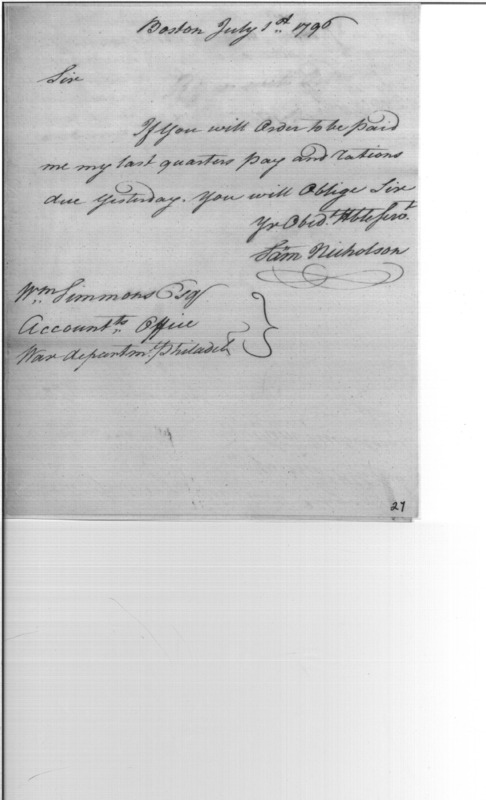 Boston July 1st 1796
Sir
If You will Order to be paid
me my last quarters pay and rations
due Yesterday. You will Oblige Sir
Yr Obedt Hble Servt
Sam Nicholson
Wm Simmons Esq
Accountts Office
War departmt Philadel
27